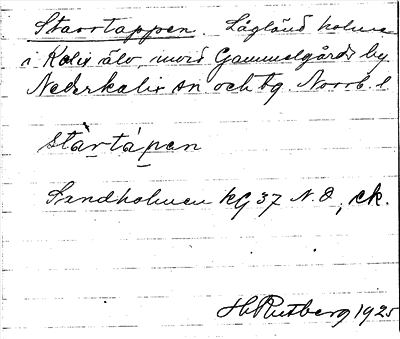 Starrtappen. Lågländ holme
i Kalix älv, invid Gammelgårds by
Nederkalix sn. och tg. Norrb. l.
stàrtápen
Sandholmen KG 37 N.O., ek.
H. Rutberg 1925